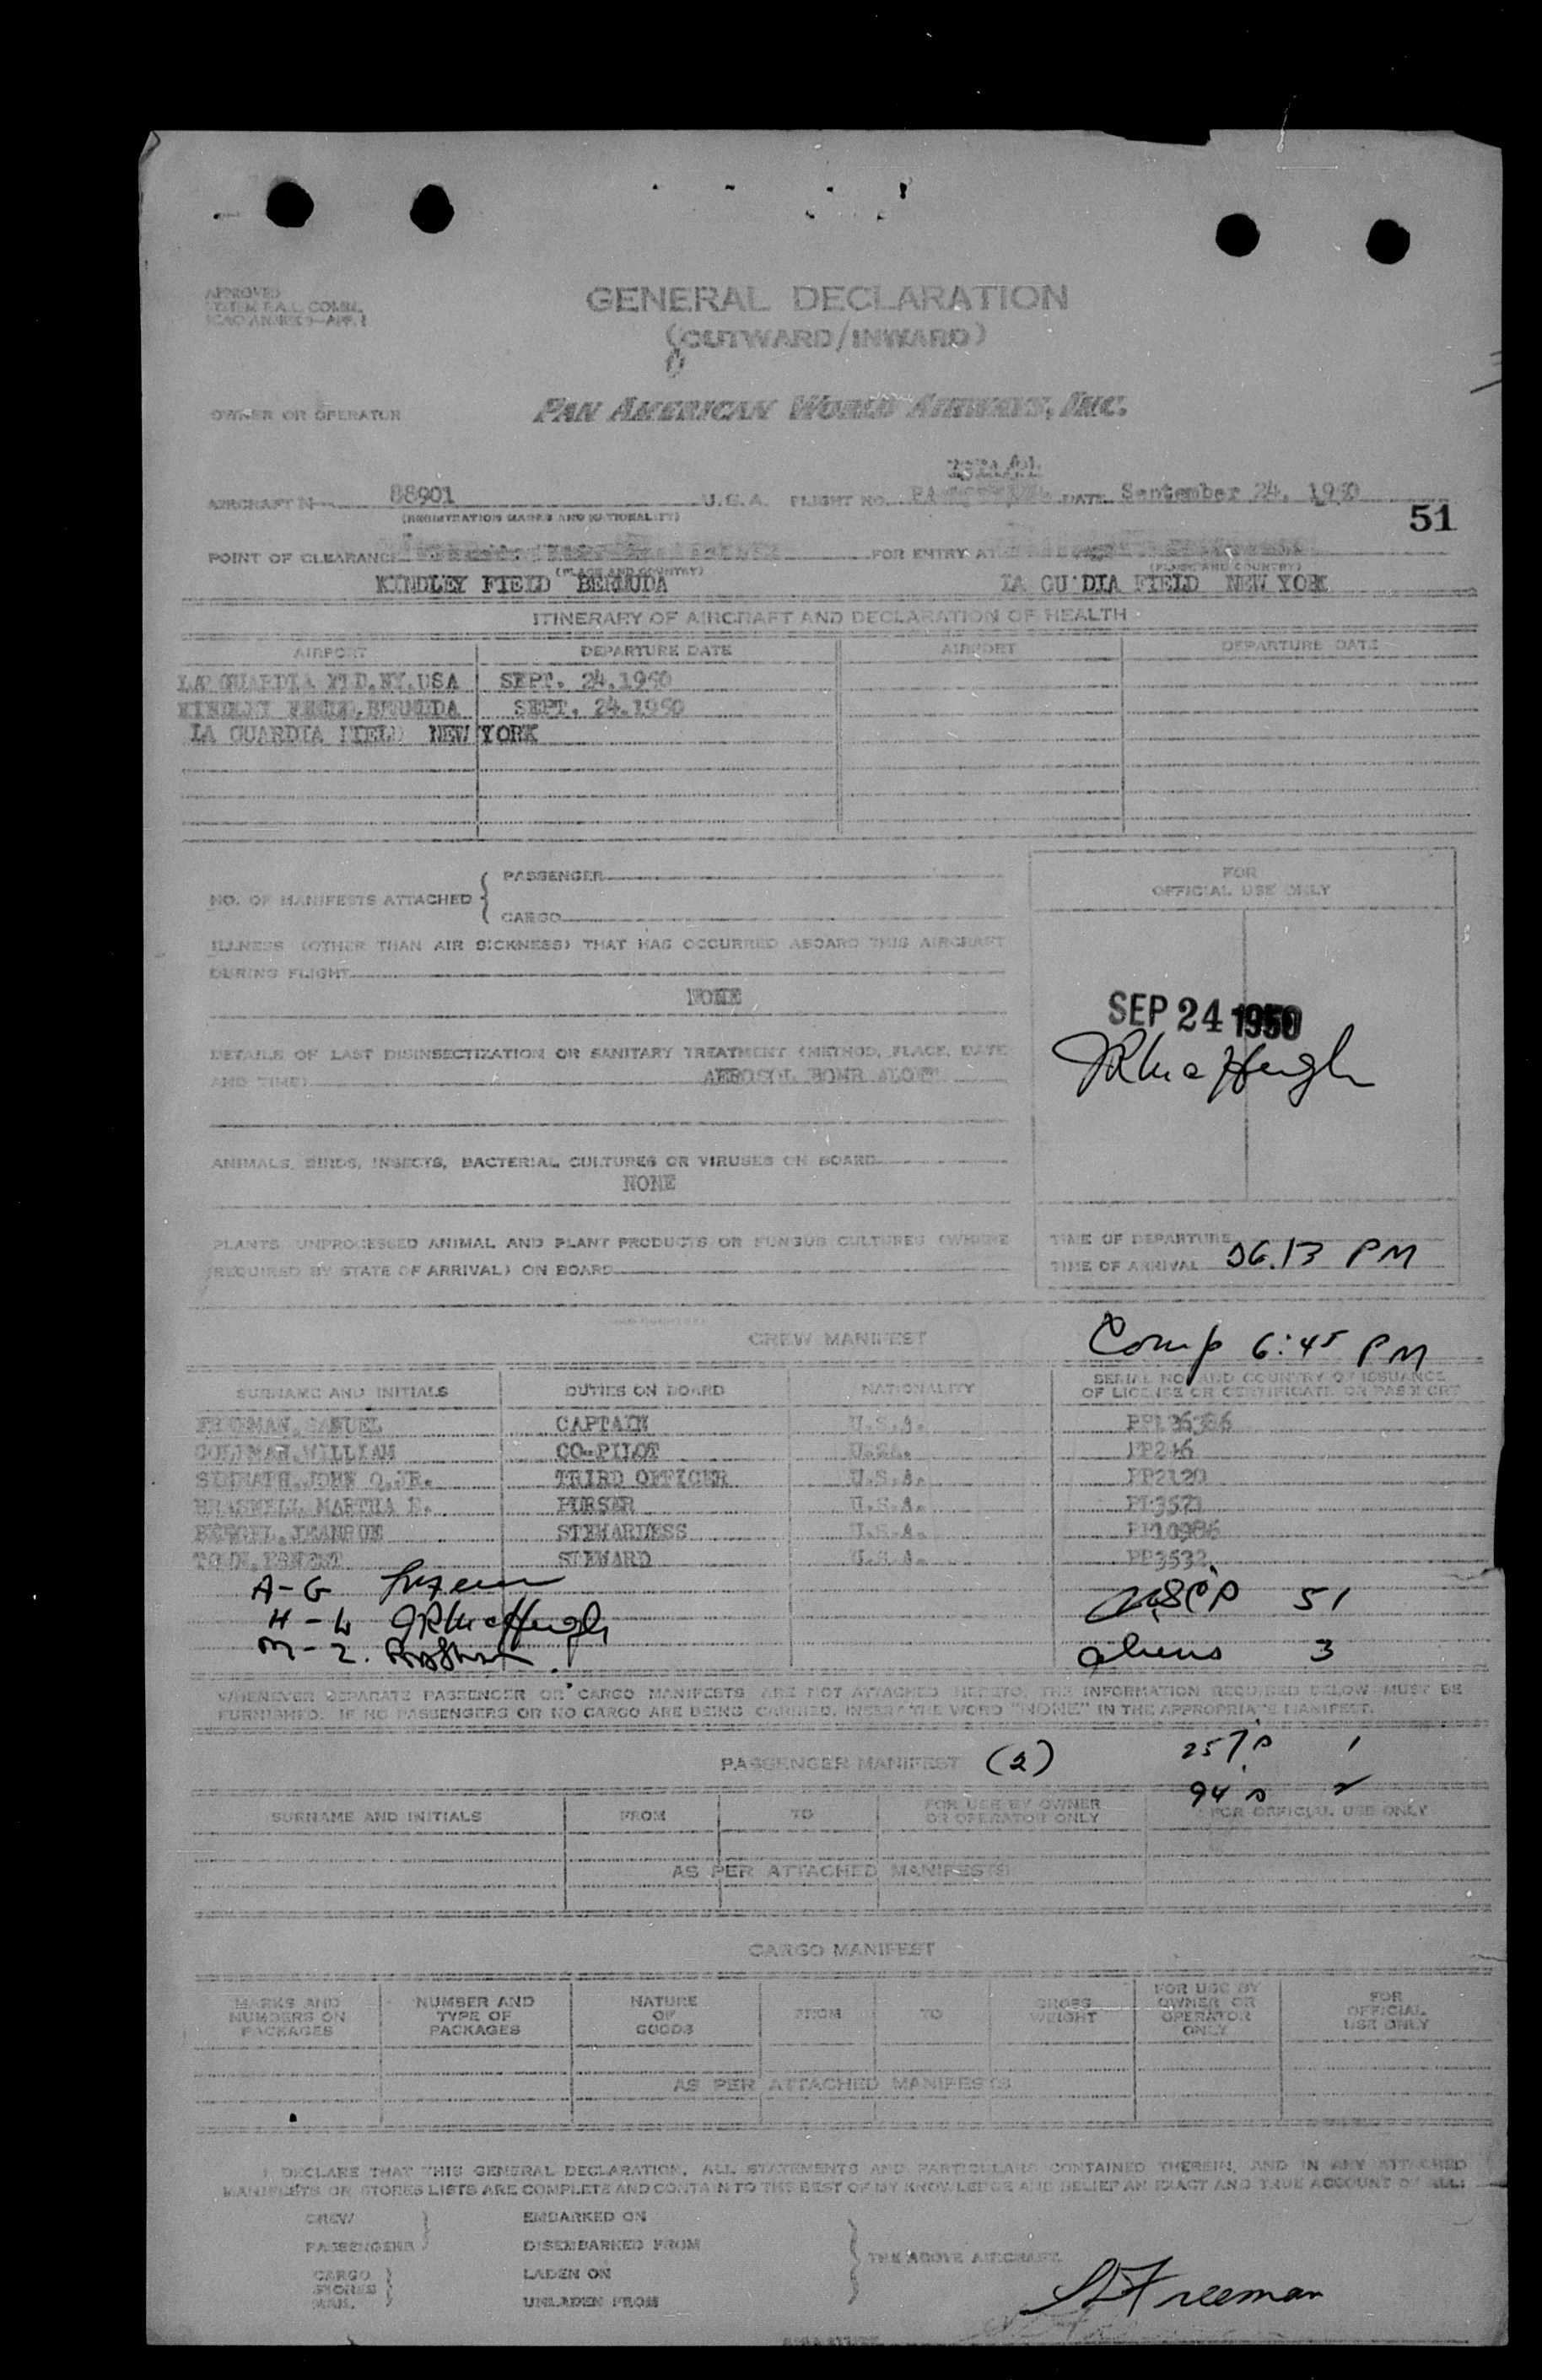 APPROVED
SYSTEM F.A.L. COMM.
ICAO ANNEX 9—APP. 1
GENERAL DECLARATION
(OUTWARD/INWARD)
OWNER OR OPERATOR PAN AMERICAN WORLD AIRWAYS, INC.
AIRCRAFT N 88901 U.S.A. FLIGHT NO. DATE September 24, 1950
(REGISTRATION MARKS AND NATIONALITY)
51
POINT OF CLEARANCE FOR ENTRY AT
(PLACE AND COUNTRY) (PLACE AND COUNTRY)
KINDLEY FIELD BERMUDA LA GU'DIA FIELD NEW YORK
ITINERARY OF AIRCRAFT AND DECLARATION OF HEALTH
AIRPORT DEPARTURE DATE AIRPORT DEPARTURE DATE
LA GUARDIA FLD.NY.USA SEPT. 24.1950
KINDLEY FIELD,BERMUDA SEPT. 24.1950
LA GUARDIA FIELD NEW YORK
NO. OF MANIFESTS ATTACHED { PASSENGER
CARGO
FOR
OFFICIAL USE ONLY
ILLNESS (OTHER THAN AIR SICKNESS) THAT HAS OCCURRED ABOARD THIS AIRCRAFT
DURING FLIGHT
NONE
SEP 24 1950
DETAILS OF LAST DISINSECTIZATION OR SANITARY TREATMENT (METHOD, PLACE, DATE
AND TIME) AEROSOL BOMB
JRMacHugh
ANIMALS, BIRDS, INSECTS, BACTERIAL CULTURES OR VIRUSES ON BOARD
NONE
PLANTS, UNPROCESSED ANIMAL AND PLANT PRODUCTS OR FUNGUS CULTURES (WHERE
REQUIRED BY STATE OF ARRIVAL) ON BOARD
TIME OF DEPARTURE
TIME OF ARRIVAL 06.13 PM
CREW MANIFEST
Comp 6:45 PM
SURNAME AND INITIALS DUTIES ON BOARD NATIONALITY SERIAL NO. AND COUNTRY OF ISSUANCE
OF LICENSE OR CERTIFICATE OR PASSPORT
FREEMAN,SAMUEL CAPTAIN U.S.A.
COLEMAN,WILLIAM CO-PILOT U.SA.
JOHN O.JR. TRIRD OFFICER U.S.A. PP2120
MARTHA PURSER U.S.A.
STEWARDESS U.S.A. PP10986
STEWARD U.S.A. PP3532
A-G
H-L JRMacHugh
M-Z.
USC's 51
aliens 3
WHENEVER SEPARATE PASSENGER OR CARGO MANIFESTS ARE NOT ATTACHED HERETO, THE INFORMATION REQUIRED BELOW MUST BE
FURNISHED. IF NO PASSENGERS OR NO CARGO ARE BEING CARRIED, INSERT THE WORD "NONE" IN THE APPROPRIATE MANIFEST.
PASSENGER MANIFEST (2)
257's 1
94's 2
SURNAME AND INITIALS FROM TO FOR USE BY OWNER
OR OPERATOR ONLY FOR OFFICIAL USE ONLY
AS PER ATTACHED MANIFESTS
CARGO MANIFEST
MARKS AND
NUMBERS ON
PACKAGES NUMBER AND
TYPE OF
PACKAGES NATURE
OF
GOODS FROM TO GROSS
WEIGHT FOR USE BY
OWNER OR
OPERATOR
ONLY FOR
OFFICIAL
USE ONLY
AS PER ATTACHED MANIFESTS
I DECLARE THAT THIS GENERAL DECLARATION, ALL STATEMENTS AND PARTICULARS CONTAINED THEREIN, AND IN ANY ATTACHED
MANIFESTS OR STORES LISTS ARE COMPLETE AND CONTAIN TO THE BEST OF MY KNOWLEDGE AND BELIEF AN EXACT AND TRUE ACCOUNT OF ALL:
CREW EMBARKED ON
PASSENGERS DISEMBARKED FROM
THE ABOVE AIRCRAFT
CARGO LADEN ON
STORES
MAIL UNLADEN FROM
S Freeman
SIGNATURE